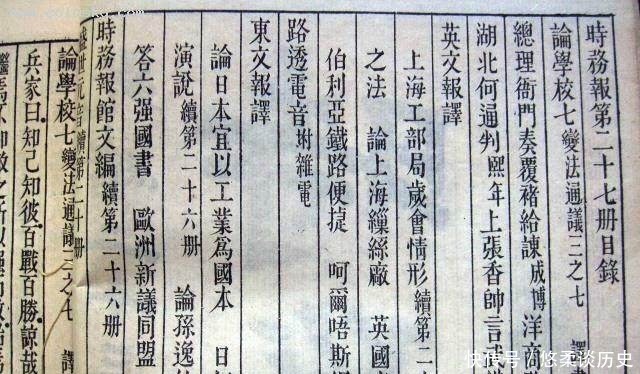 時務報第二十七册目錄
論學校七變法通議三之七
總理衙門奏覆褚給諫成博 洋商
湖北何通判熙年上張香帥言
英文報譯
上海工部局歲會情形續第二
之法 論上海繅絲廠 英國
伯利亞鐵路便捷 呵爾唔斯
路透電音附雜電
東文報譯
論日本宜以工業爲國本 日
演說續第二十六册 論孫逸
答六强國書 歐洲新議同盟
時務報館文編續第二十六册
論學校七變法通議三之七 譯
兵家曰知己知彼百戰百勝諒哉
快傳号 / 悠柔谈历史